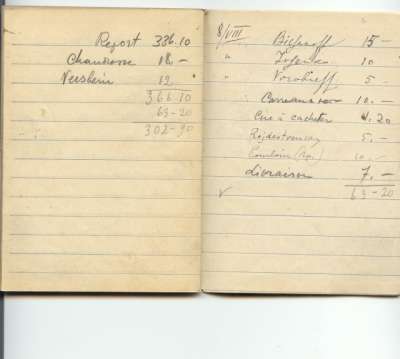 Report 336.10
Chaudosse 18.-
Versheim 12.
366.10
63-20
302-90
8/VIII Bischoff 15-
" 10
" Vorobieff 5-
10.-
Cire à cacheter 4.20
5.-
10.-
Livraison 7.-
63-20